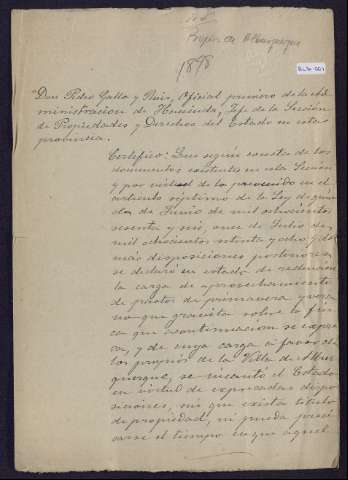 Propios de Alburquerque
1898
Don Pedro Gallo y Ruiz, Oficial primero de la Ad
ministracion de Hacienda, Jefe de la Sección
de Propiedades y Derechos del Estado en esta
provincia.
Certifico: Que según consta de los
documentos existentes en esta Sección
y por virtud de lo prevenido en el
artículo septimo de la Ley de quin
de Junio de mil ochocientos
sesenta y seis, once de Julio de
mil ochocientos setenta y ocho y de
más disposiciones posteriores
se declaró en estado de redención
la carga de aprovechamiento
de pastos de primavera y vera
no que gravita sobre la fin
ca que a continuacion se expre
sa, y de cuya carga a favor de
los propios de la Villa de Albur
querque, se incautó el Estado
en virtud de expresadas dispo
siciones, sin que exista titulo
de propiedad, ni pueda preci
sarse el tiempo en que aquel